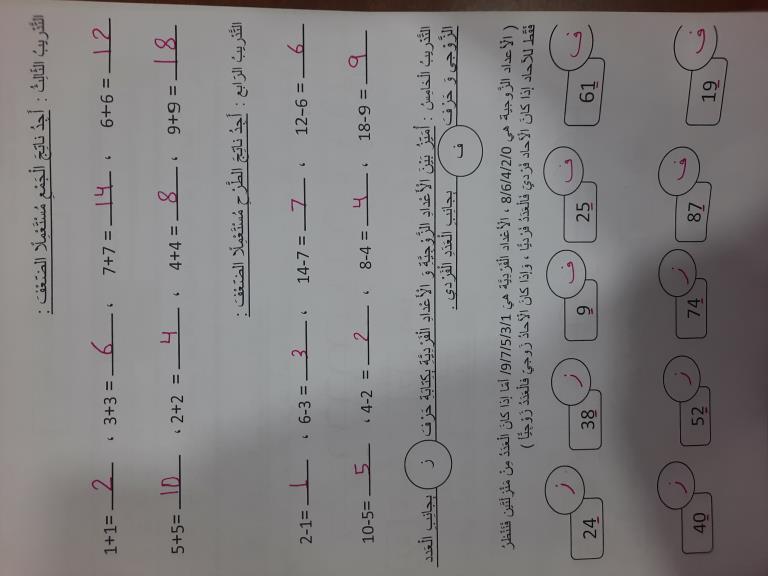 التَّدْرِيبُ الثَّالِثُ : أَجِدُ نَاتِجَ الْجَمْعِ مُسْتَعْمِلًا الضِّعْفَ :
1+1= 2 ، 3+3 = 6 ، 7+7 = 14 ، 6+6 = 12
5+5= 10 ، 2+2 = 4 ، 4+4 = 8 ، 9+9 = 18
التَّدْرِيبُ الرَّابِعُ : أَجِدُ نَاتِجَ الطَّرْحِ مُسْتَعْمِلًا الضِّعْفَ :
2-1= 1 ، 6-3 = 3 ، 14-7 = 7 ، 12-6 = 6
10-5= 5 ، 4-2 = 2 ، 8-4 = 4 ، 18-9 = 9
التَّدْرِيبُ الْخَامِسُ : أُمَيِّزُ بَيْنَ الْأَعْدَادِ الزَّوْجِيَّةِ وَ الْأَعْدَادِ الْفَرْدِيَّةِ بِكِتَابَةِ حَرْفِ ز بِجَانِبِ الْعَدَدِ
الزَّوْجِيِّ وَ حَرْفِ ف بِجَانِبِ الْعَدَدِ الْفَرْدِي .
( الْأَعْدَاد الزَّوجِية هي 8/6/4/2/0 ، الْأَعْدَاد الْفَرْدِيَّة هي 9/7/5/3/1/ أمّا إذا كانَ الْعَدَدُ مِنْ مَنْزِلَتَين فَنَنْظُرُ
فَقَط للآحَاد إذا كانَ الْآحَاد فَرْدِيّ فَالْعَدَدُ فَرْدِيًّا ، وَإذا كانَ الْآحَادُ زَوجِيّ فَالْعَدَدُ زَوْجِيًّا )
24 ز 38 ز 9 ف 25 ف 61 ف
40 ز 52 ز 74 ز 87 ف 19 ف